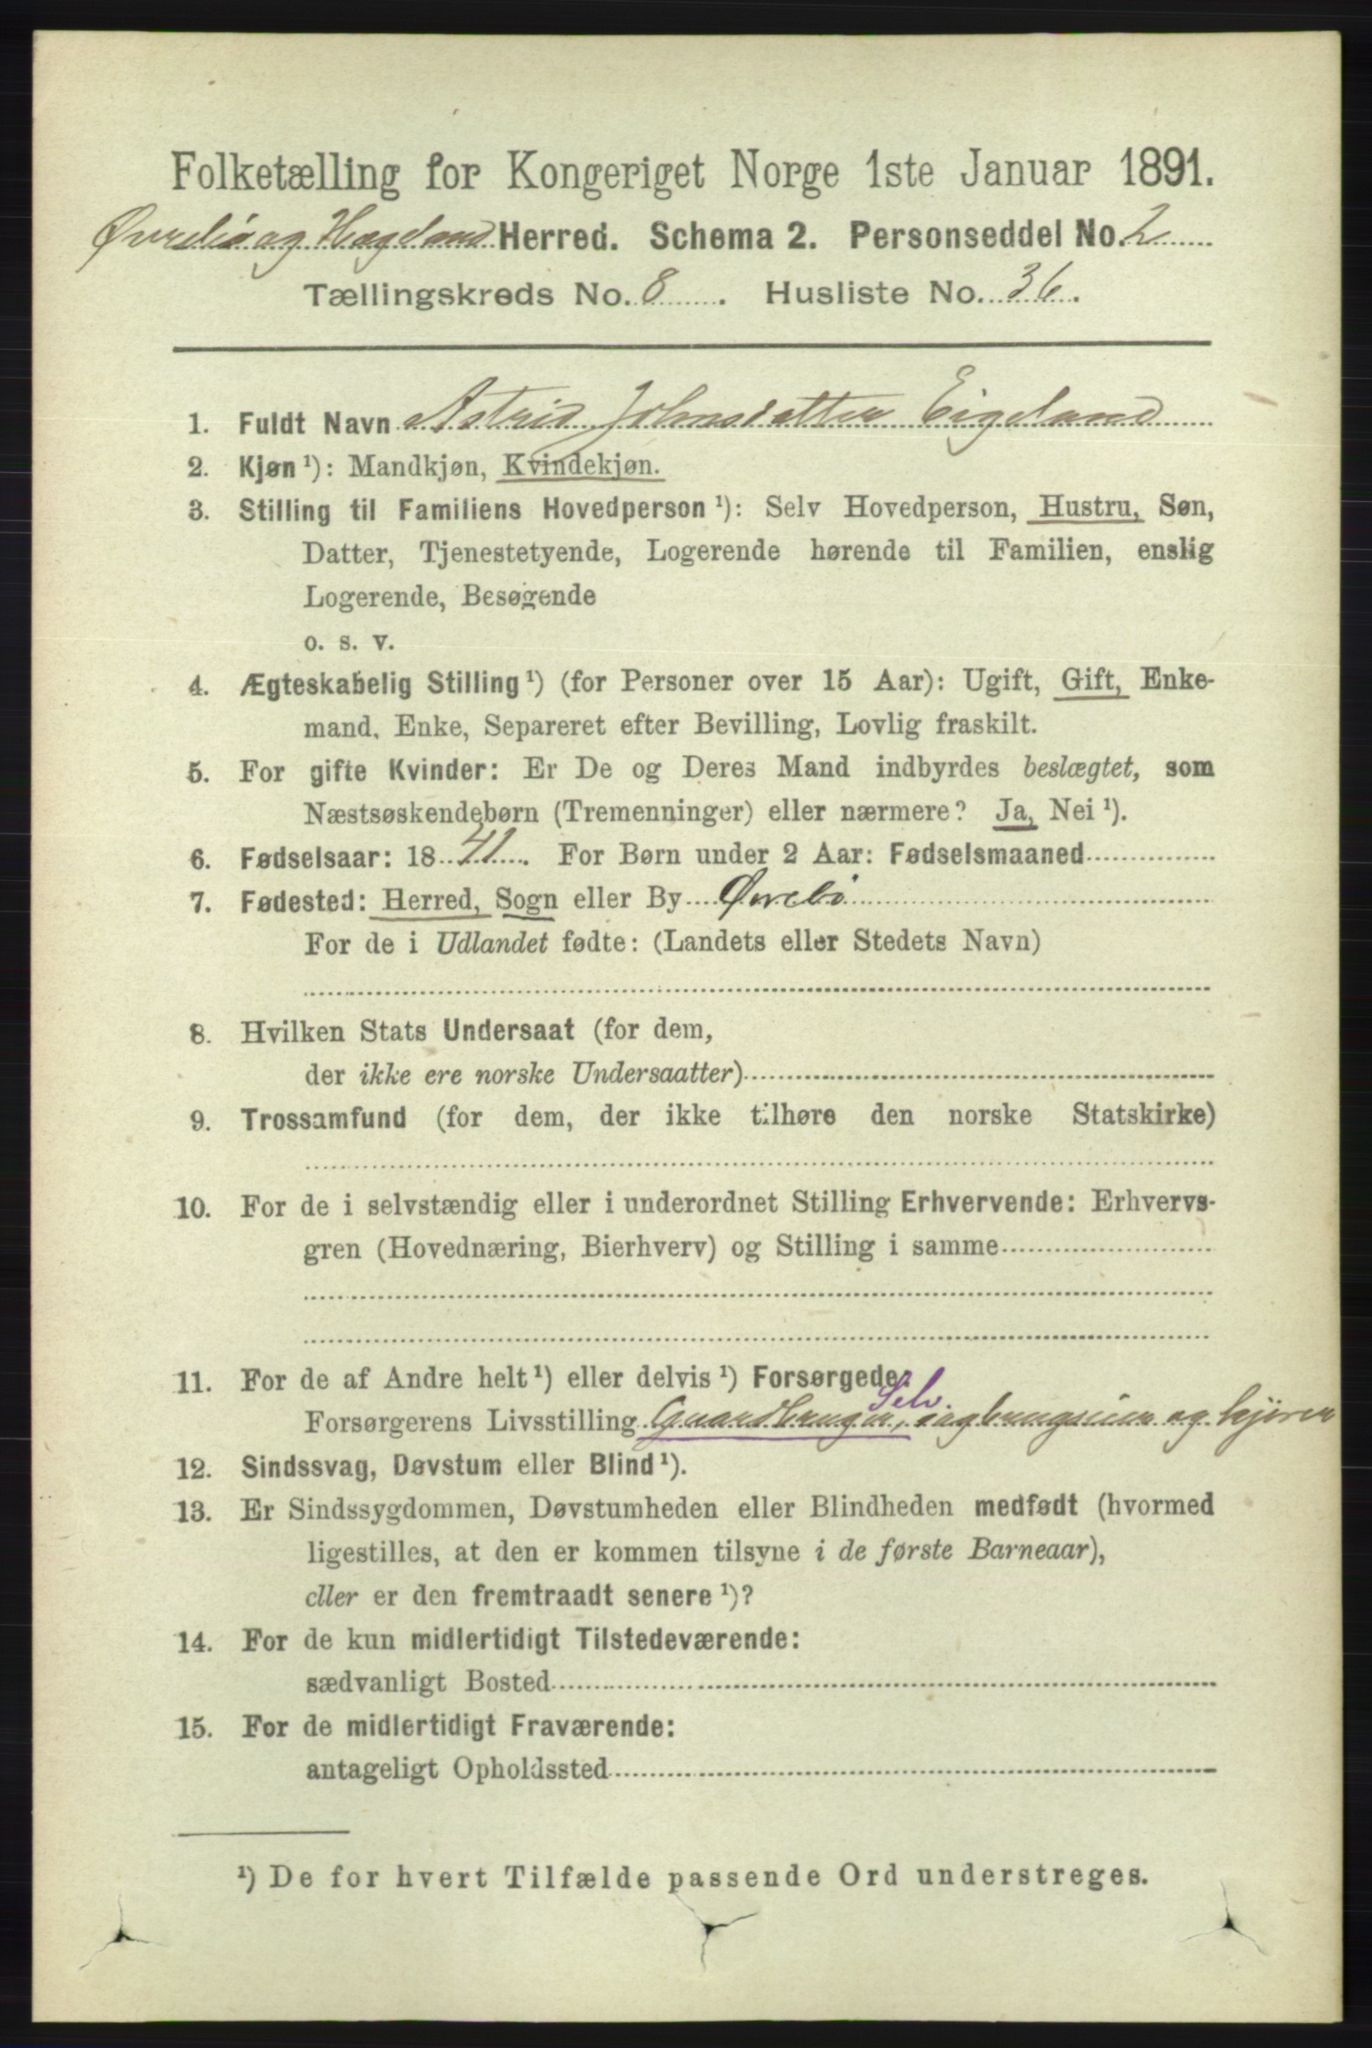 Folketælling for Kongeriget Norge 1ste Januar 1891.
Øvrebø og Hægeland Herred. Schema 2. Personseddel No. 2
Tællingskreds No. 8. Husliste No. 36.
1. Fuldt Navn Astrid Johnsdatter Eigeland
2. Kjøn ¹): Mandkjøn, Kvindekjøn.
3. Stilling til Familiens Hovedperson ¹): Selv Hovedperson, Hustru, Søn,
Datter, Tjenestetyende, Logerende hørende til Familien, enslig
Logerende, Besøgende
o. s. v.
4. Ægteskabelig Stilling ¹) (for Personer over 15 Aar): Ugift, Gift, Enke-
mand, Enke, Separeret efter Bevilling, Lovlig fraskilt.
5. For gifte Kvinder: Er De og Deres Mand indbyrdes beslægtet, som
Næstsøskendebørn (Tremenninger) eller nærmere? Ja, Nei ¹).
6. Fødselsaar: 1841. For Børn under 2 Aar: Fødselsmaaned
7. Fødested: Herred, Sogn eller By Øvrebø
For de i Udlandet fødte: (Landets eller Stedets Navn)
8. Hvilken Stats Undersaat (for dem,
der ikke ere norske Undersaatter)
9. Trossamfund (for dem, der ikke tilhøre den norske Statskirke)
10. For de i selvstændig eller i underordnet Stilling Erhvervende: Erhvervs-
gren (Hovednæring, Bierhverv) og Stilling i samme
11. For de af Andre helt ¹) eller delvis ¹) Forsørgede:
Selv.
Forsørgerens Livsstilling Gaardbruger, sagbrugseier og kjører
12. Sindssvag, Døvstum eller Blind ¹).
13. Er Sindssygdommen, Døvstumheden eller Blindheden medfødt (hvormed
ligestilles, at den er kommen tilsyne i de første Barneaar),
eller er den fremtraadt senere ¹)?
14. For de kun midlertidigt Tilstedeværende:
sædvanligt Bosted
15. For de midlertidigt Fraværende:
antageligt Opholdssted
¹) De for hvert Tilfælde passende Ord understreges.